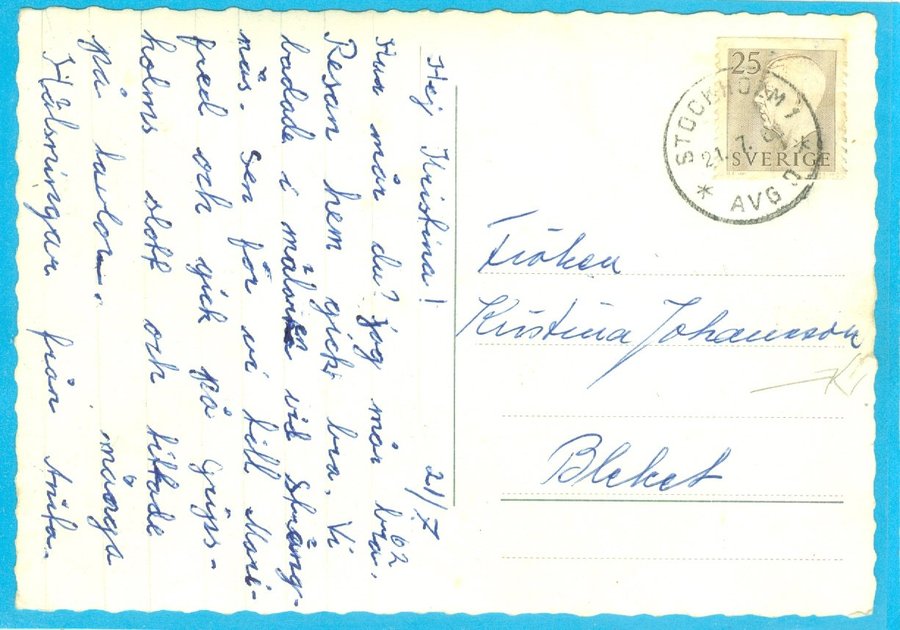 Hej Kristina! 21/7 62
Hur mår du? jag mår bra.
Resan hem gick bra. Vi
badade i mälaren vid Sträng-
näs. Sen för vi till Mari-
fred och gick på Grips-
holms slott och tittade
på tavlor. många
Hälsningar från Anita.
25
SVERIGE
STOCKHOLM 1
21.7.
AVG
Fröken
Kristina Johansson
Bleket